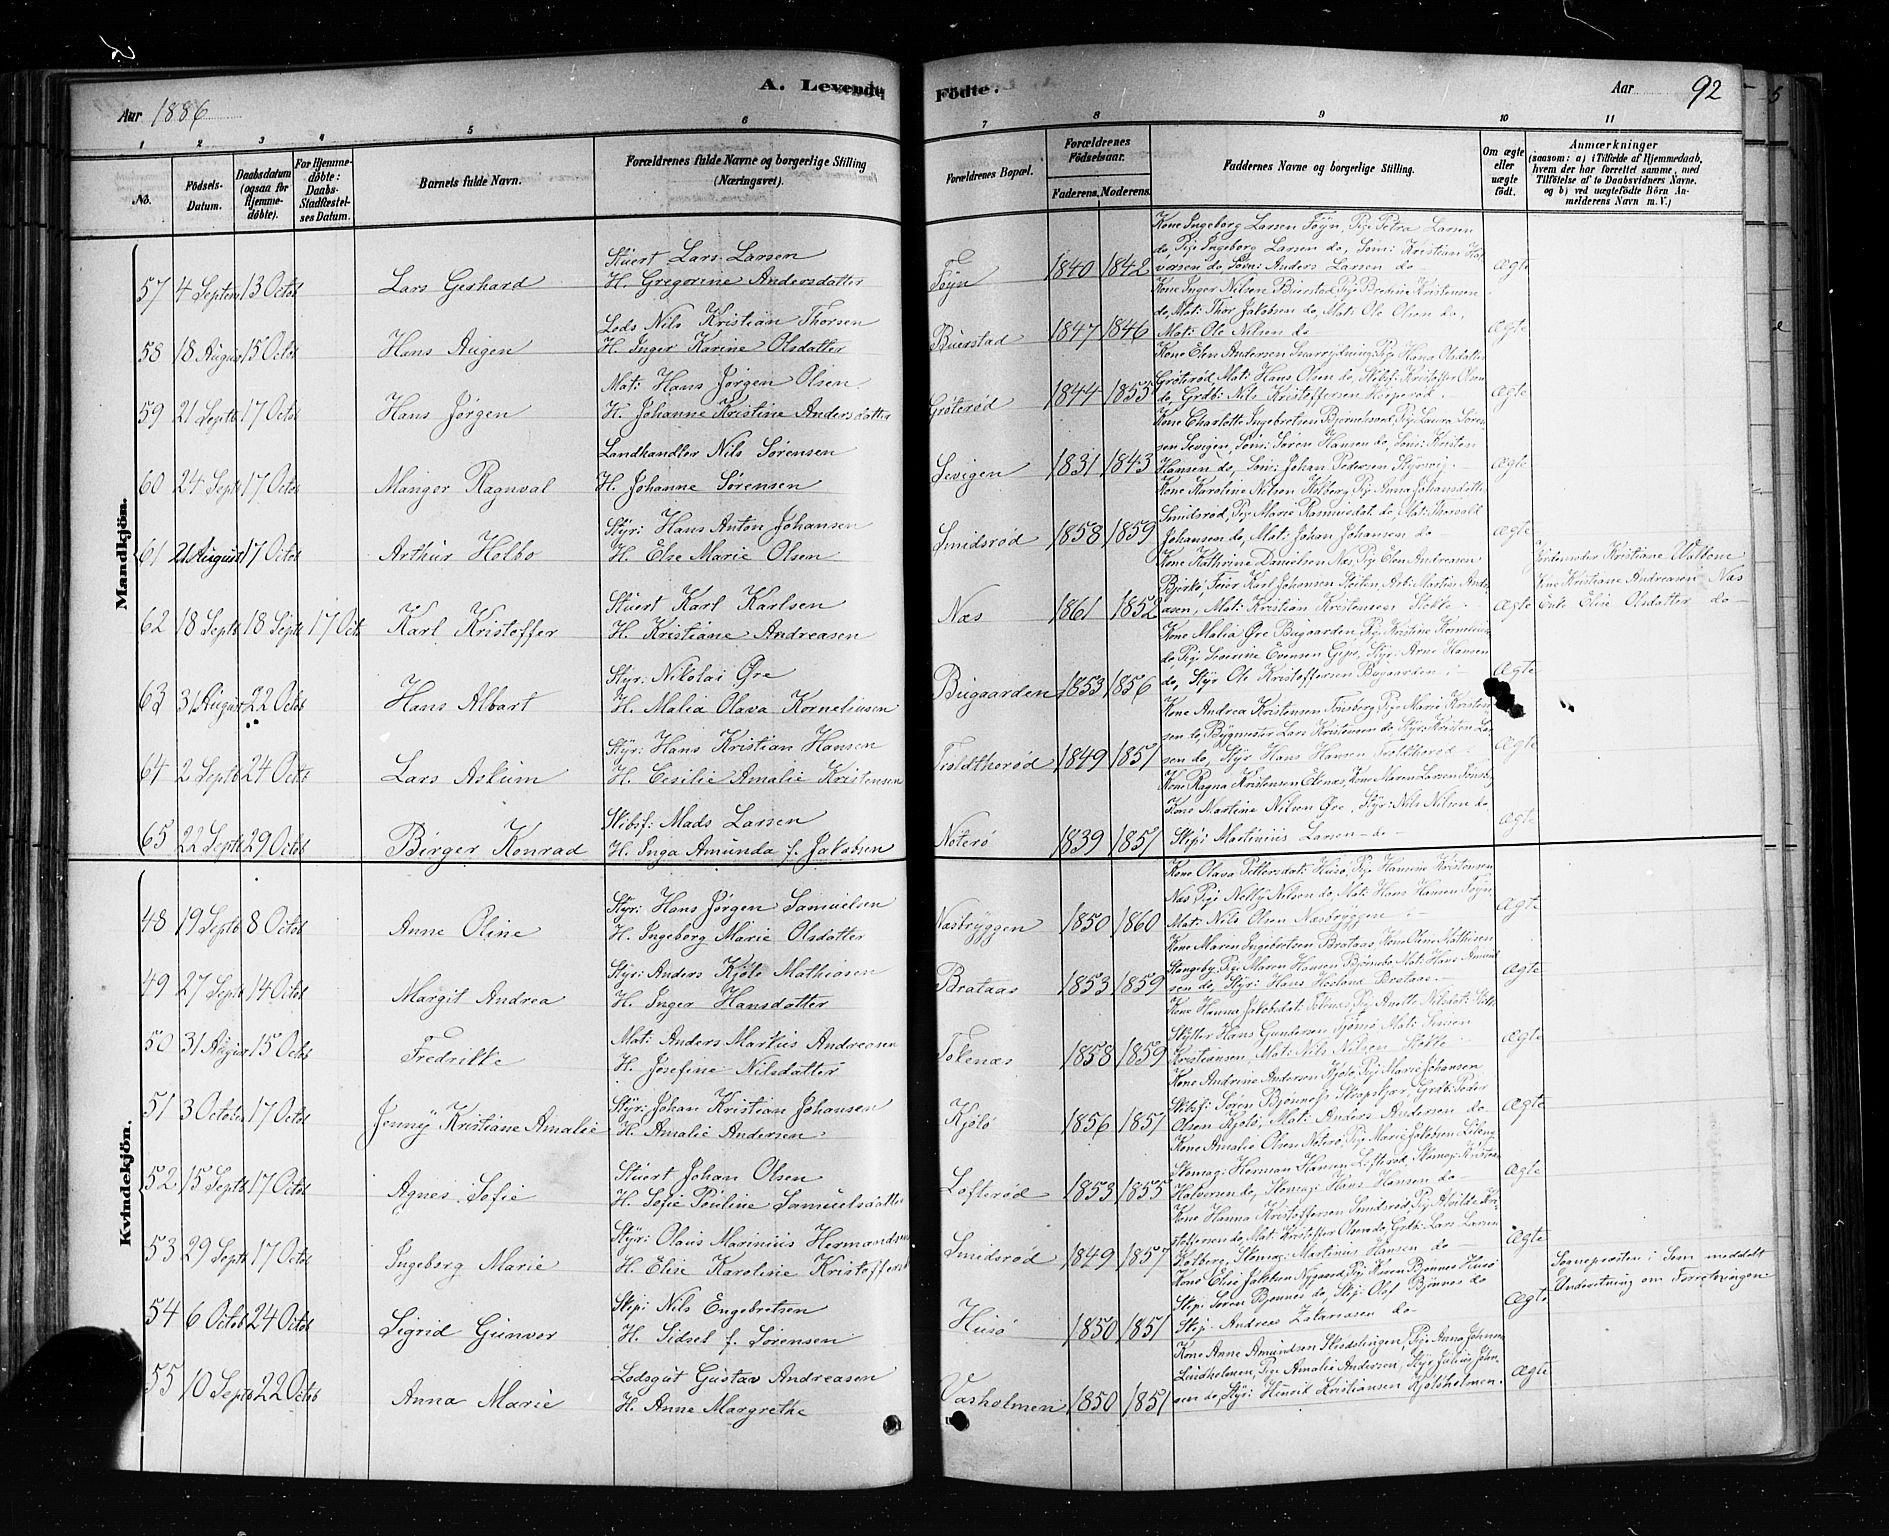 A. Levende Födte.
Aar 1886
Aar 92
1 2 3 4 5 6 7 8 9 10 11
No. Födsels-Datum. Daabsdatum (ogsaa for Hjemmedöbte). For Hjemmedöbte: Daabs-Stadfæstelses Datum. Barnets fulde Navn. Forældrenes fulde Navne og borgerlige Stilling (Næringsvei). Forældrenes Bopæl. Forældrenes Födselsaar. Faderens. Moderens. Faddernes Navne og borgerlige Stilling. Om ægte eller uægte födt. Anmærkninger (saasom: a) i Tilfælde af Hjemmedaab, hvem der har forrettet samme, med Tilföielse af to Daabsvidners Navne, og b) ved uægtefödte Börn Anmelderens Navn m. V.)
Mandkjön.
57 4 Septem 13 Octob Lars Gerhard Stuert Lars Larsen
H. Gregorine Andersdatter Föyn 1840 1842 Kone Ingeborg Larsen Föyn, Pige Petra Larsen
do, Pige Ingeborg Larsen do, Söm: Kristian
do, Söm: Anders Larsen do ægte
58 18 August 15 Octob Hans Augen Lods Nils Kristian Thorsen
H. Inger Karine Olsdatter Buerstad 1847 1846 Kone Inger Nilsen Buerstad, Pige Bredine Kristensen
do, Mat: Thor Jakobsen do, Mat: Ole Olsen do,
Mat: Ole Nilsen do ægte
59 21 Septb 17 Octob Hans Jörgen Mat: Hans Jörgen Olsen
H. Johanne Kristine Andersdatter Gröteröd 1844 1855 Kone Elen Andersen Pige Hana Olsdatter
Gröteröd, Mat: Hans Olsen do, Skibsf: Kristoffer Olsen
do, Grdb: Nils Kristoffersen ægte
60 24 Septb 17 Octob Mangor Ragnval Landhandler Nils Sörensen
H. Johanne Sörensen Sevigen 1831 1843 Kone Charlotte Ingebretsen Pige Laura Sören
sen Sevigen, Söm: Sören Hansen do, Söm: Kristen
Hansen do, Söm: Johan Pedersen ægte
61 21 August 17 Octob Arthur Holbo Styr: Hans Anton Johansen
H. Else Marie Olsen Smidsröd 1858 1859 Kone Karoline Nilsen Holberg, Pige Anna Johansdatter
Smidsröd, Pige Marie do, Mat: Thorvald
Johansen do, Mat: Johan Johansen do ægte
62 18 Septb 18 Septb 17 Oct. Karl Kristoffer Stuert Karl Karlsen
H. Kristiane Andreasen Næs 1861 1852 Kone Kathrine Danielsen Næs, Pige Elen Andreasen
Karl Johansen Arb: Martin Andre
asen, Mat: Kristian Kristensen ægte Jordemoder Kristiane
Kone Kristiane Andreasen Næs
Enke Elise Olsdatter do
63 31 August 22 Octob Hans Albart Styr: Nikolai Öre
H. Malia Olava Kornelinsen Bugaarden 1853 1856 Kone Malia Öre Bugaarden, Pige Kristine
do, Pige Severine Evensen Styr: Arne Hansen
do, Styr Ole Kristoffersen Bugaarden ægte
64 2 Septb 24 Octb Lars Askum Styr: Hans Kristian Hansen
H. Cesilie Amalie Kristensen 1849 1851 Kone Andrea Kristensen Tönsberg, Pige Marie Kristen
sen do, Lars Kristensen do, Styr: Kristen Lar
sen do, Styr Hans Hansen ægte
65 22 Septb 29 Octob Birger Konrad Skibsf: Mads Larsen
H. Inga Amunda f. Jakobsen Nöterö 1839 1851 Kone Ragna Kristensen Kone Maren Larsen
Kone Martine Nilsen Öre, Styr: Nils Nilsen do
Skip: Martinius Larsen do ægte
Kvindekjön.
48 19 Septb 8 Octob Anne Oline Styr: Hans Jörgen Samuelsen
H. Ingeborg Marie Olsdatter Næsbryggen 1850 1860 Kone Olava Pettersdat: Husö, Pige Hansine Kristensen
Næs, Pige Nelly Nilsen do, Mat: Hans Hansen Föyn
Mat: Nils Olsen Næsbryggen ægte
49 27 Septb 14 Octob Margit Andrea Styr: Anders Kjölö Mathiasen
H. Inger Hansdatter Brataas 1853 1859 Kone Maren Ingebretsen Brataas, Kone Oline Mathisen
Pige Maren Hansen Mat: Hans
sen do, Styr: Hans Brataas ægte
50 31 August 15 Octob Fredrikke Mat: Anders Markus Andreasen
H. Josefine Nilsdatter Tokenæs 1858 1859 Kone Hanna Jakobsdat: Pige Anette Nilsdat:
Hans Gundersen Mat:
Kristiansen, Mat: Nils Nilsen ægte
51 3 October 17 Octob Jenny Kristiane Amalie Styr: Johan Kristian Johansen
H. Amalie Andersen Kjölö 1856 1851 Kone Andrine Andersen Kjölö, Pige Marie Johansen
Skibsf: Sören Grdb: Peder
Olsen Kjölö, Mat: Anders Andersen do ægte
52 15 Septb 17 Octob Agnes Sofie Stuert Johan Olsen
H. Sofie Pouline Samuelsdatter Lofteröd 1853 1855 Kone Amalie Olsen Nöterö, Pige Marie Jakobsen
Skomag: Herman Hansen Skomag: Kristen
Halversen do, Skomag: Hans Hansen do ægte
53 29 Septb 17 Octob Ingeborg Marie Styr: Olaus Marinius Hermandsen
H. Elise Karoline Kristoffersen Smidsröd 1849 1857 Kone Hanna Kristoffersen Smidsröd, Pige
stoffersen do, Mat: Kristoffer Olsen do, Grdb: Lars Larsen
Holberg, Skomag: Martinus Hansen do ægte
54 6 Octob 24 Octob Sigrid Gunvor Skip: Nils Engebretsen
H. Sidsel f. Sörensen Husö 1850 1851 Kone Elise Jakobsen Pige Karen Bjönnes Husö
Skip: Sören Bjönnes do, Skip Olaf Bjönnes do
Skip: Andreas Zakariasen do ægte Sognepresten i Sem meddelt
Underetning om Forretningen
55 10 Septb 22 Octob Anna Marie Lodsgut Gustav Andreasen
H. Anne Margrethe Vasholmen 1850 1851 Kone Anne Amundsen Pige Anna
Lindholmen, Pige Amalie Andersen, Styr Julius
sen do, Styr: Hinrik Kristiansen ægte